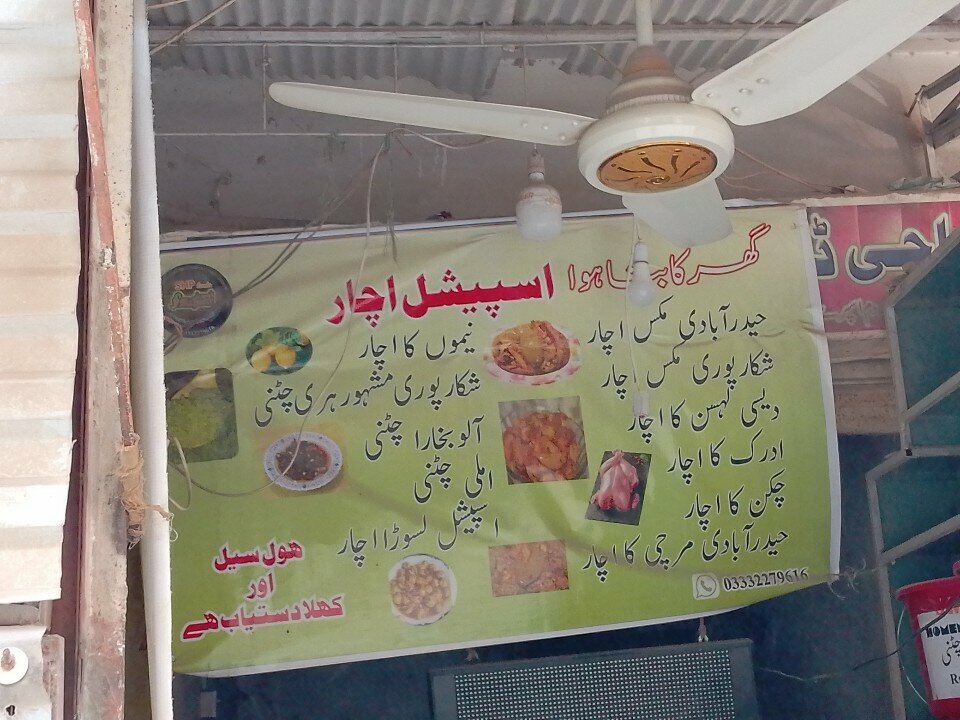 گھر کا بنا ہوا اسپیشل اچار
حیدرآبادی مکس اچار
شکارپوری مکس اچار
دیسی لہسن کا اچار
ادرک کا اچار
چکن کا اچار
حیدرآبادی مرچی کا اچار
نیموں کا اچار
شکارپوری مشہور ہری چٹنی
آلو بخارا چٹنی
املی چٹنی
اسپیشل لسوڑا اچار
ھول سیل
اور
کھلا دستیاب ھے
03332279616
SHP
چٹنی